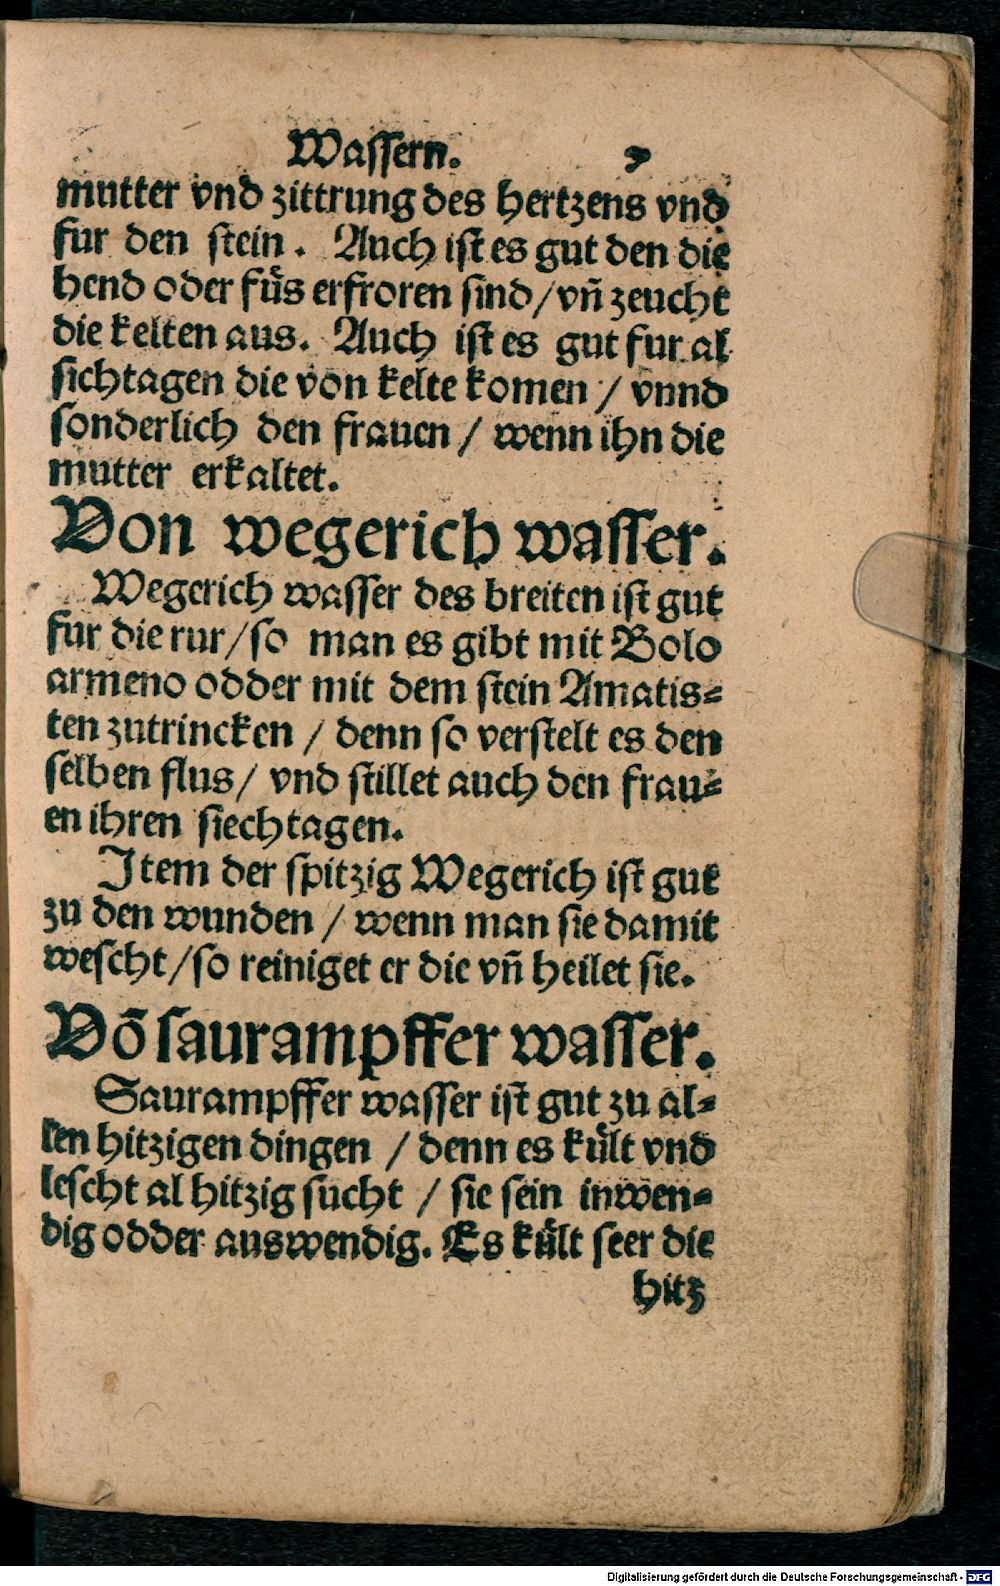 Wassern. 7
mutter vnd zittrung des hertzens vnd
fur den stein. Auch ist es gut den die
hend oder fuͤs erfroren sind/vn̄ zeucht
die kelten aus. Auch ist es gut fur al
sichtagen die von kelte komen / vnnd
sonderlich den frauen / wenn ihn die
mutter erkaltet.
Von wegerich wasser.
Wegerich wasser des breiten ist gut
fur die rur/so man es gibt mit Bolo
armeno odder mit dem stein Amatis⸗
ten zutrincken / denn so verstelt es den
selben flus/ vnd stillet auch den frau⸗
en ihren siechtagen.
Item der spitzig Wegerich ist gut
zu den wunden / wenn man sie damit
wescht/so reiniget er die vn̄ heilet sie.
Võ saurampffer wasser.
Saurampffer wasser ist gut zu al⸗
len hitzigen dingen / denn es kuͤlt vnd
lescht al hitzig sucht / sie sein inwen⸗
dig odder auswendig. Es kuͤlt seer die
hitz
Digitalisierung gefördert durch die Deutsche Forschungsgemeinschaft - DFG